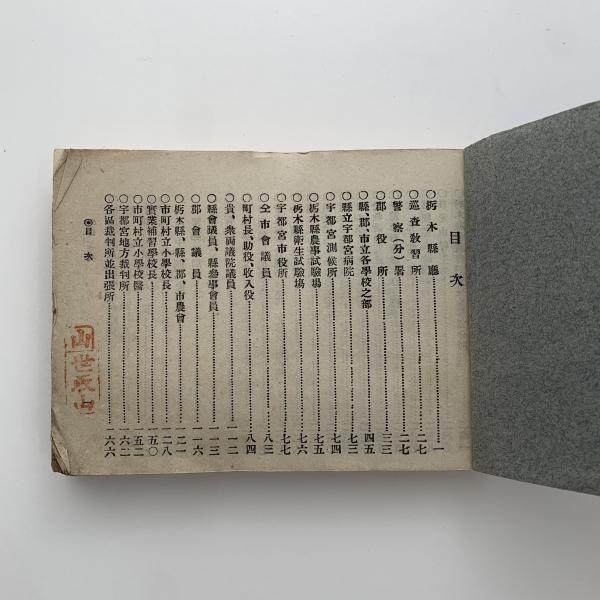 目次
○栃木縣廳……一
○巡査敎習所……二七
○警察(分)署……二七
○郡役所……三三
○縣、郡、市立各學校之部……四五
○縣立宇都宮病院……七三
○宇都宮測候所……七四
○栃木縣農事試驗場……七五
○栃木縣衛生試驗場……七六
○宇都宮市役所……七七
○仝市會議員……八三
○町村長、助役、收入役……八四
○貴、衆両議院議員……一一二
○縣會議員、縣參事會員……一一三
○郡會議員……一一六
○栃木縣、縣、郡、市農會……一二一
○市町村立小學校長……一二八
○實業補習學校長……一五〇
○市町村立小學校醫……一五二
○宇都宮地方裁判所……一六二
○各區裁判所並出張所……一六六
◎目次